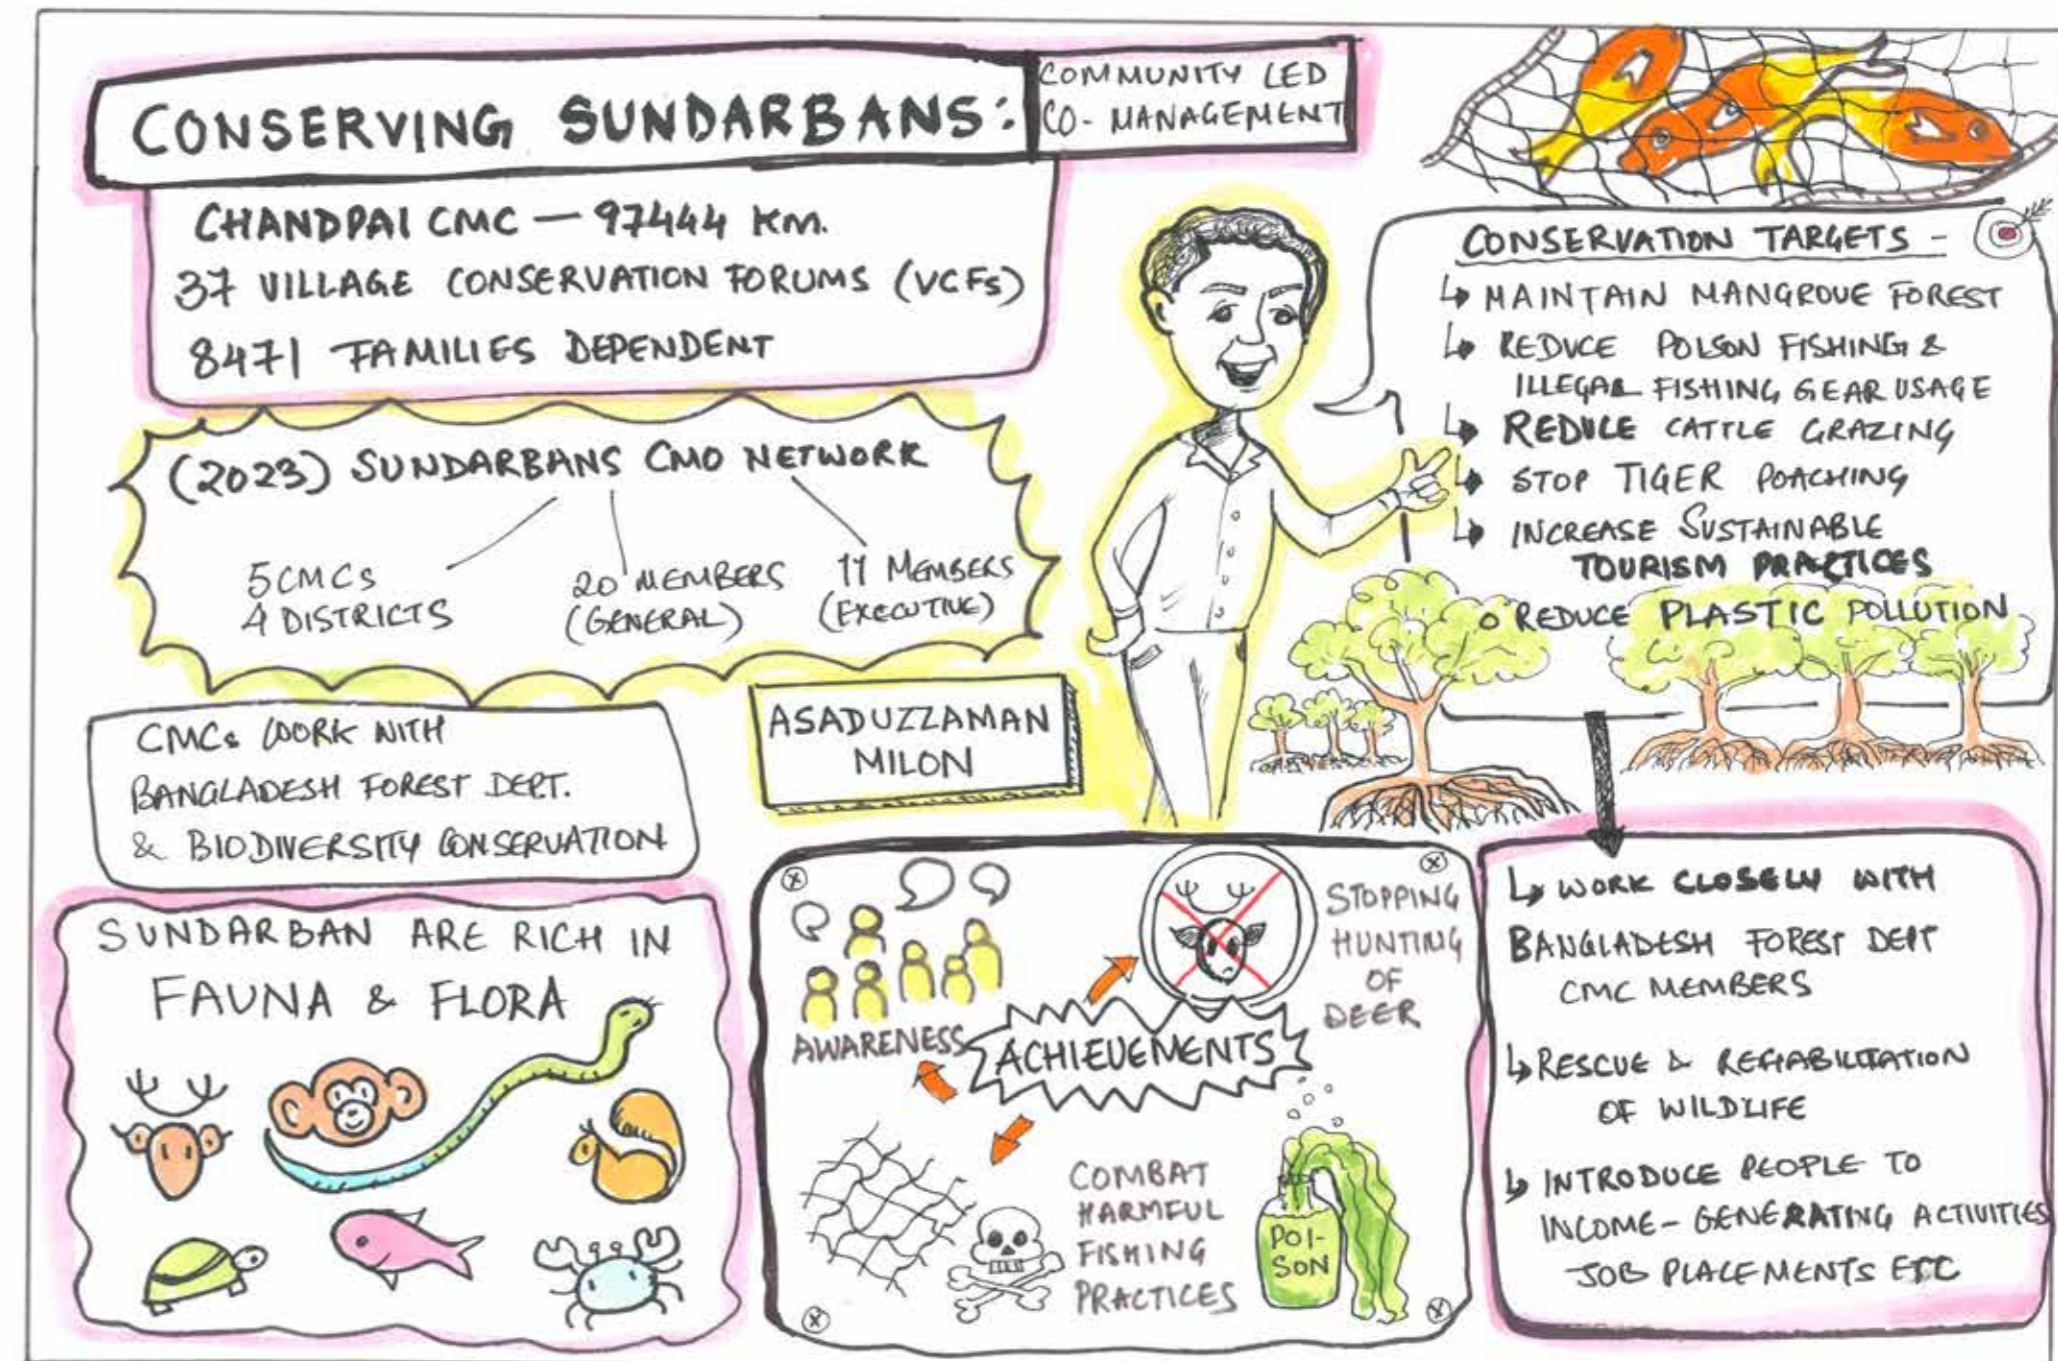 CONSERVING SUNDARBANS:
COMMUNITY LED
CO-MANAGEMENT
CHANDPAI CMC — 97444 KM.
37 VILLAGE CONSERVATION FORUMS (VCFs)
8471 FAMILIES DEPENDENT
(2023) SUNDARBANS CMO NETWORK
5 CMCs
4 DISTRICTS
20 MEMBERS
(GENERAL)
11 MEMBERS
(EXECUTIVE)
CMCs WORK WITH
BANGLADESH FOREST DEPT.
& BIODIVERSITY CONSERVATION
SUNDARBAN ARE RICH IN
FAUNA & FLORA
ASADUZZAMAN
MILON
CONSERVATION TARGETS -
MAINTAIN MANGROVE FOREST
REDUCE POISON FISHING &
ILLEGAL FISHING GEAR USAGE
REDUCE CATTLE GRAZING
STOP TIGER POACHING
INCREASE SUSTAINABLE
TOURISM PRACTICES
REDUCE PLASTIC POLLUTION
AWARENESS
ACHIEVEMENTS
STOPPING
HUNTING
OF
DEER
COMBAT
HARMFUL
FISHING
PRACTICES
POI-
SON
WORK CLOSELY WITH
BANGLADESH FOREST DEPT
CMC MEMBERS
RESCUE & REHABILITATION
OF WILDLIFE
INTRODUCE PEOPLE TO
INCOME-GENERATING ACTIVITIES
JOB PLACEMENTS ETC